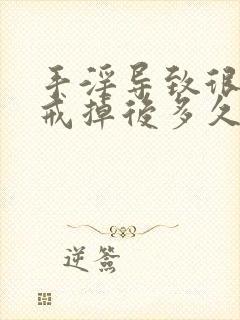 手淫导致很
戒掉后多久
逆签